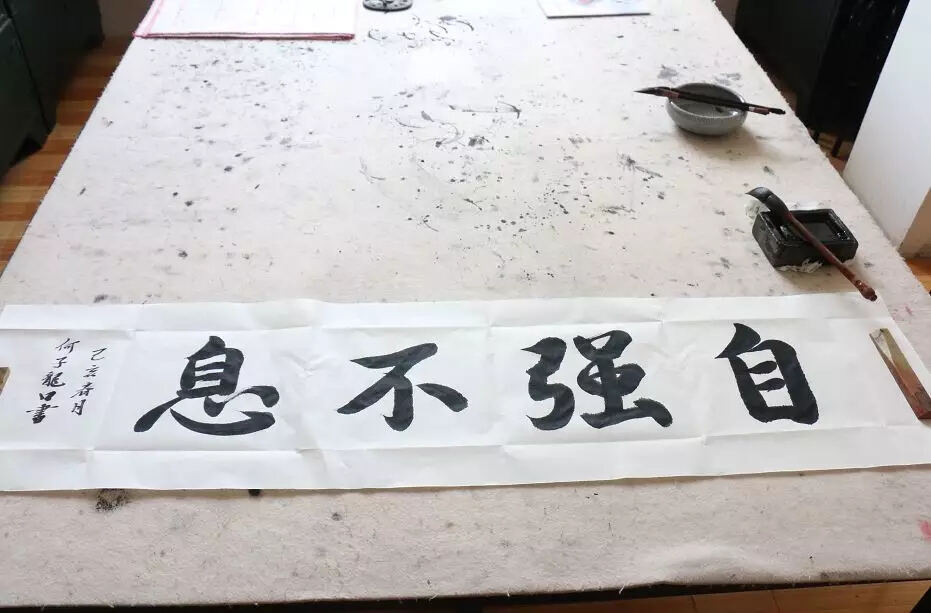 自强不息
己亥春月
何子龍口書